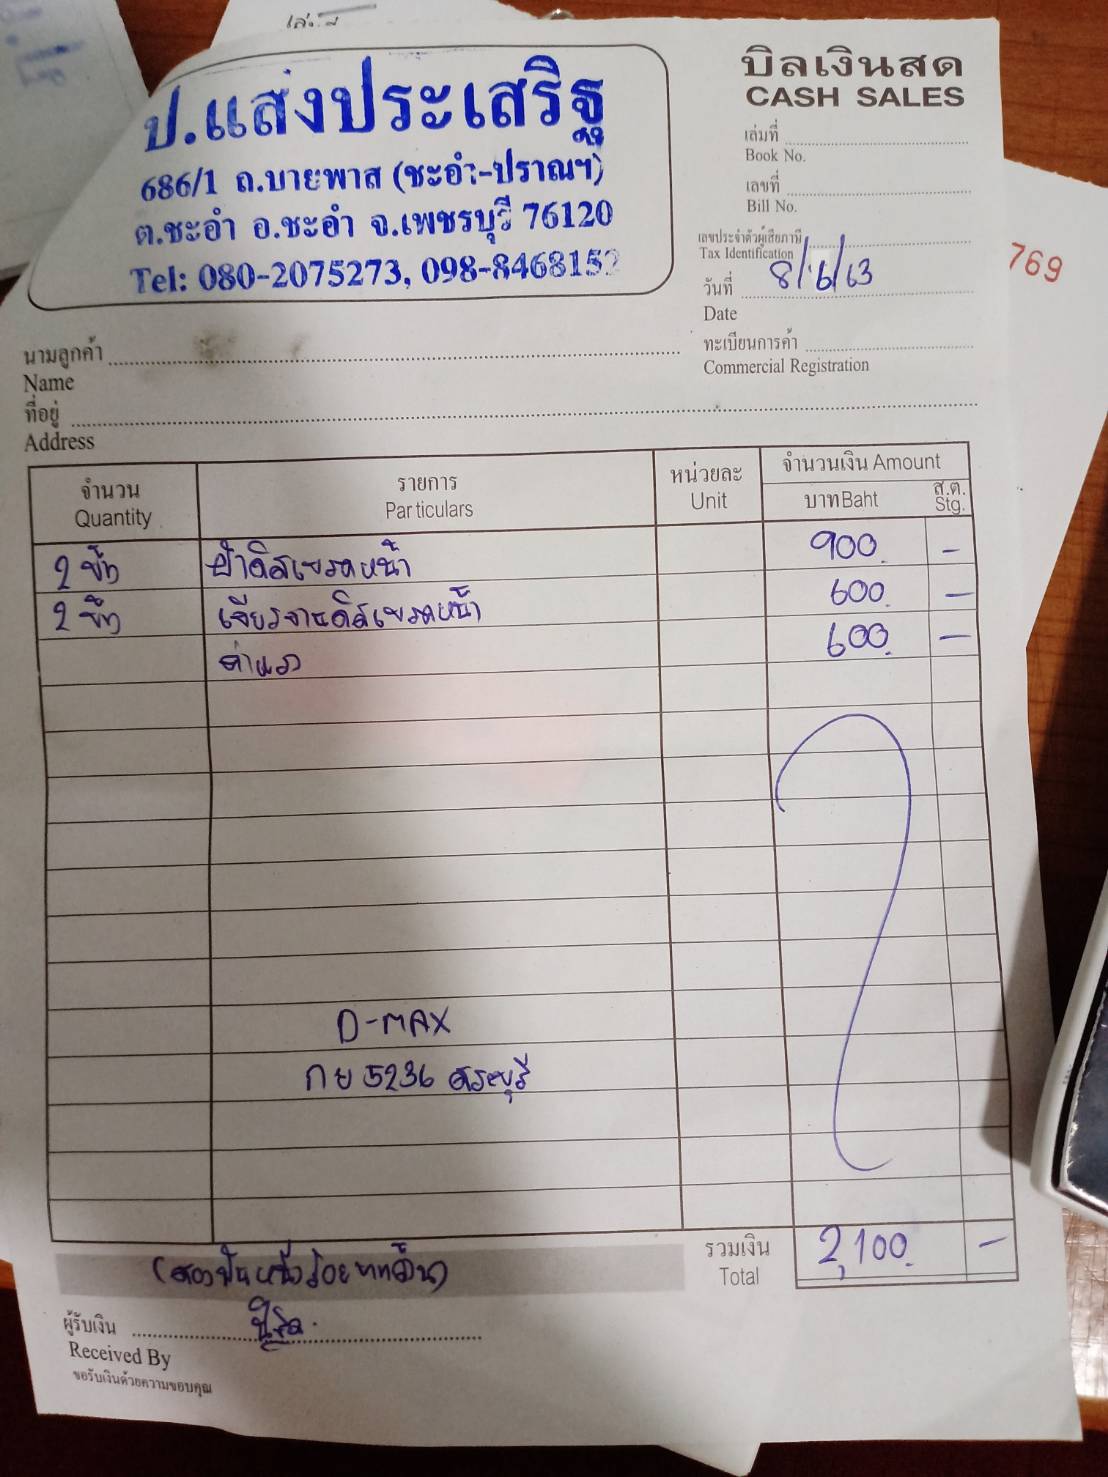 บิลเงินสด
CASH SALES
ป.แสงประเสริฐ
686/1 ถ.บายพาส (ชะอำ-ปราณฯ)
ต.ชะอำ อ.ชะอำ จ.เพชรบุรี 76120
Tel: 080-2075273, 098-8468152
เล่มที่
Book No.
เลขที่
Bill No.
เลขประจำตัวผู้เสียภาษี
Tax Identification
769
วันที่ 8/6/63
Date
นามลูกค้า
Name
ทะเบียนการค้า
Commercial Registration
ที่อยู่
Address
จำนวน รายการ หน่วยละ จำนวนเงิน Amount
Quantity Particulars Unit บาท Baht ส.ต. Stg.
2 ชิ้น ผ้าดิสเบรคหน้า 900. –
2 ชิ้น เจียรจานดิสเบรคหน้า 600. –
ค่าแรง 600. –
D-MAX
กย 5236 สระบุรี
(สองพันหนึ่งร้อยบาทถ้วน) รวมเงิน 2,100. –
Total
ผู้รับเงิน
Received By
ขอรับเงินด้วยความขอบคุณ